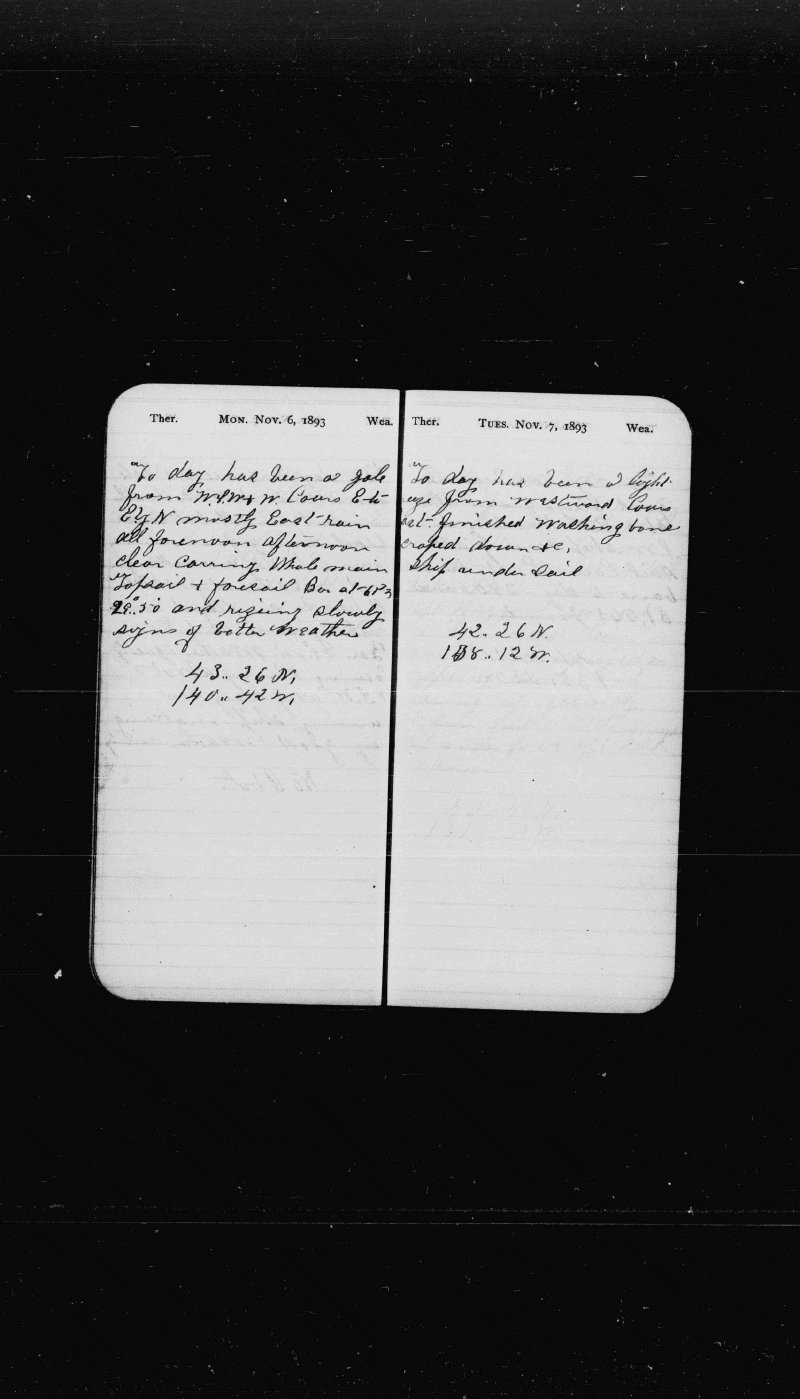 Ther. MON. NOV. 6, 1893 Wea.
To day has been a gale
from W. Cours E to
E by N mostly East rain
all forenoon afternoon
clear Carring Whole main
Topsail + foresail Bar at
29.50 and rizeing slowly
signs of better Weather
43.. 26 N.
140.. 42 W.
Ther. TUES. NOV. 7, 1893 Wea.
To day has been a light
eze from Westward Cours
ast finished Washing bone
craped down &c.
Ship under Sail
42.. 26 N.
138.. 12 W.